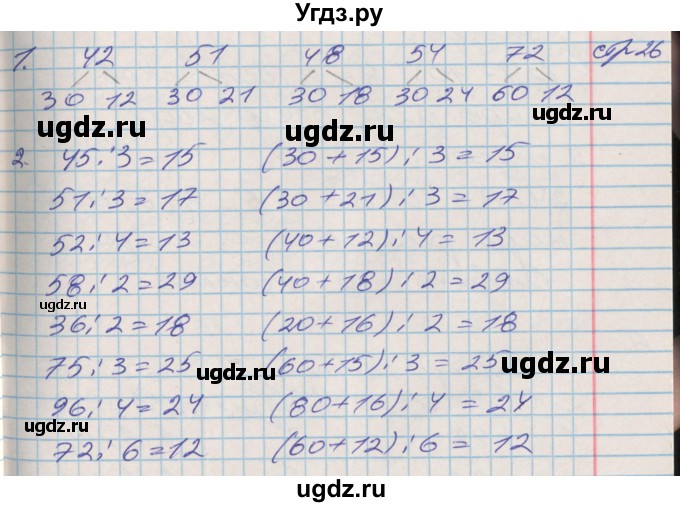 Угдз.ру
1. 42 51 48 54 72 стр 26
30 12 30 21 30 18 30 24 60 12
ugdz.ru ugdz.ru ugdz.ru
2. 45 : 3 = 15 (30 + 15) : 3 = 15
51 : 3 = 17 (30 + 21) : 3 = 17
52 : 4 = 13 (40 + 12) : 4 = 13
58 : 2 = 29 (40 + 18) : 2 = 29
ugdz.ru
36 : 2 = 18 (20 + 16) : 2 = 18
75 : 3 = 25 (60 + 15) : 3 = 25
ugdz.ru ugdz.ru
96 : 4 = 24 (80 + 16) : 4 = 24
ugdz.ru
72 : 6 = 12 (60 + 12) : 6 = 12
ugdz.ru